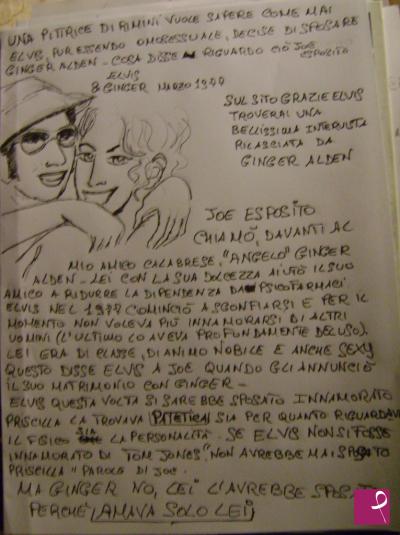 UNA PITTRICE DI RIMINI VUOLE SAPERE COME MAI
ELVIS, PUR ESSENDO OMOSESSUALE, DECISE DI SPOSARE
GINGER ALDEN - COSA DISSE RIGUARDO CIÒ JOE
ESPOSITO
ELVIS
& GINGER MARZO 1977
SUL SITO GRAZIE ELVIS
TROVERAI UNA
BELLISSIMA INTERVISTA
RILASCIATA DA
GINGER ALDEN
JOE ESPOSITO
CHIAMÒ, DAVANTI AL
MIO AMICO CALABRESE, "ANGELO" GINGER
ALDEN - LEI CON LA SUA DOLCEZZA AIUTÒ IL SUO
AMICO A RIDURRE LA DIPENDENZA DA PSICOFARMACI
ELVIS NEL 1977 COMINCIÒ A SGONFIARSI E PER IL
MOMENTO NON VOLEVA PIÙ INNAMORARSI DI ALTRI
UOMINI (L'ULTIMO LO AVEVA PROFUNDAMENTE DELUSO).
LEI ERA DI CLASSE, DI ANIMO NOBILE E ANCHE SEXY
QUESTO DISSE ELVIS A JOE QUANDO GLI ANNUNCIÒ
IL SUO MATRIMONIO CON GINGER -
ELVIS QUESTA VOLTA SI SAREBBE SPOSATO INNAMORATO
PRISCILLA LA TROVAVA PATETICA SIA PER QUANTO RIGUARDAV
IL FISICO SIA LA PERSONALITÀ. SE ELVIS NON SI FOSSE
INNAMORATO DI TOM JONES", NON AVREBBE MAI SPOSATO
PRISCILLA" PAROLE DI JOE.
MA GINGER NO, LEI L'AVREBBE SPOSATA
PERCHÉ AMAVA SOLO LEI